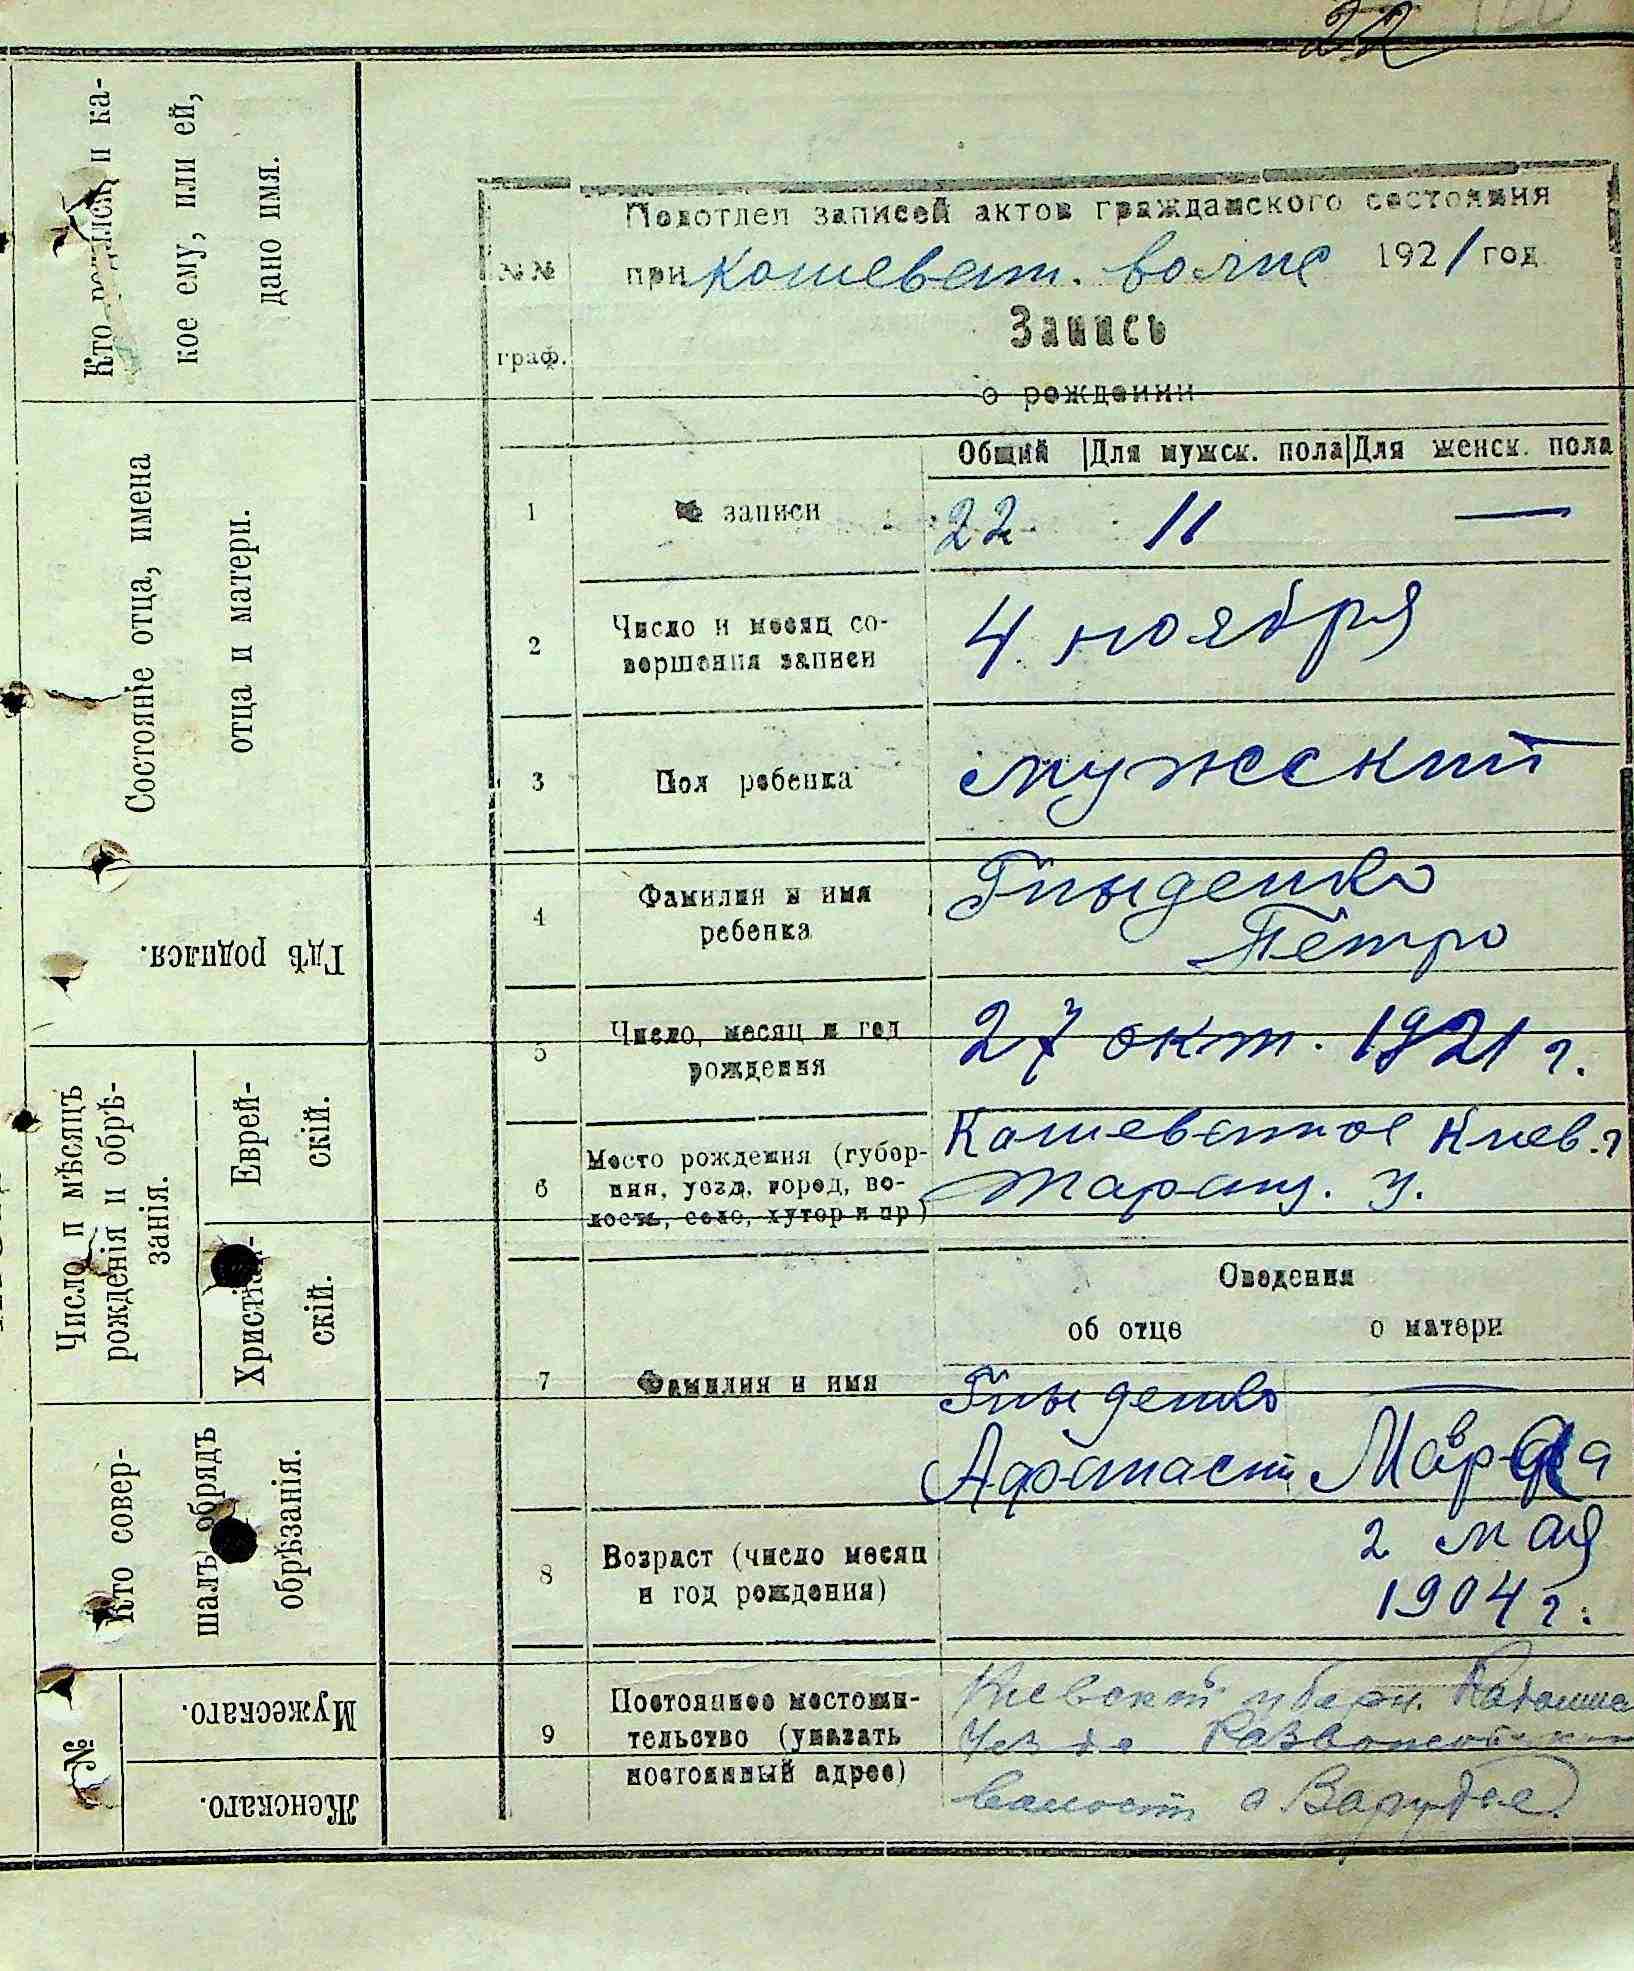 22
Кто
и ка-
кое ему, или ей,
дано имя.
Состояніе отца, имена
отца и матери.
Гдѣ родился.
Число и мѣсяцъ
рожденія и обрѣ-
занія.
Еврей-
скій.
Христіан-
скій.
Кто совер-
шалъ обрядъ
обрѣзанія.
№
Мужескаго.
Женскаго.
Подотдел записей актов гражданского состояния
при Кошеват. волис 1921 год
№№
граф.
Запись
о рождении
Общий Для мужск. пола Для женск. пола
1 № записи 22 11 —
2 Число и месяц со-
вершения записи
4 ноября
3 Пол ребенка мужский
4 Фамилия и имя
ребенка
Гныденко
Петро
5 Число, месяц и год
рождения
27 окт. 1921 г.
6 Место рождения (губер-
ния, уезд, город, во-
лость, село, хутор и пр)
Кошеватое Киев. г
Таращ. у.
Сведения
об отце о матери
7 Фамилия и имя
Гныденко —
Афанасий Мавра
8 Возраст (число месяц
и год рождения)
2 мая
1904 г.
9 Постоянное местожи-
тельство (указать
постоянный адрес)
Киевский губерн.
Уезда
волости с